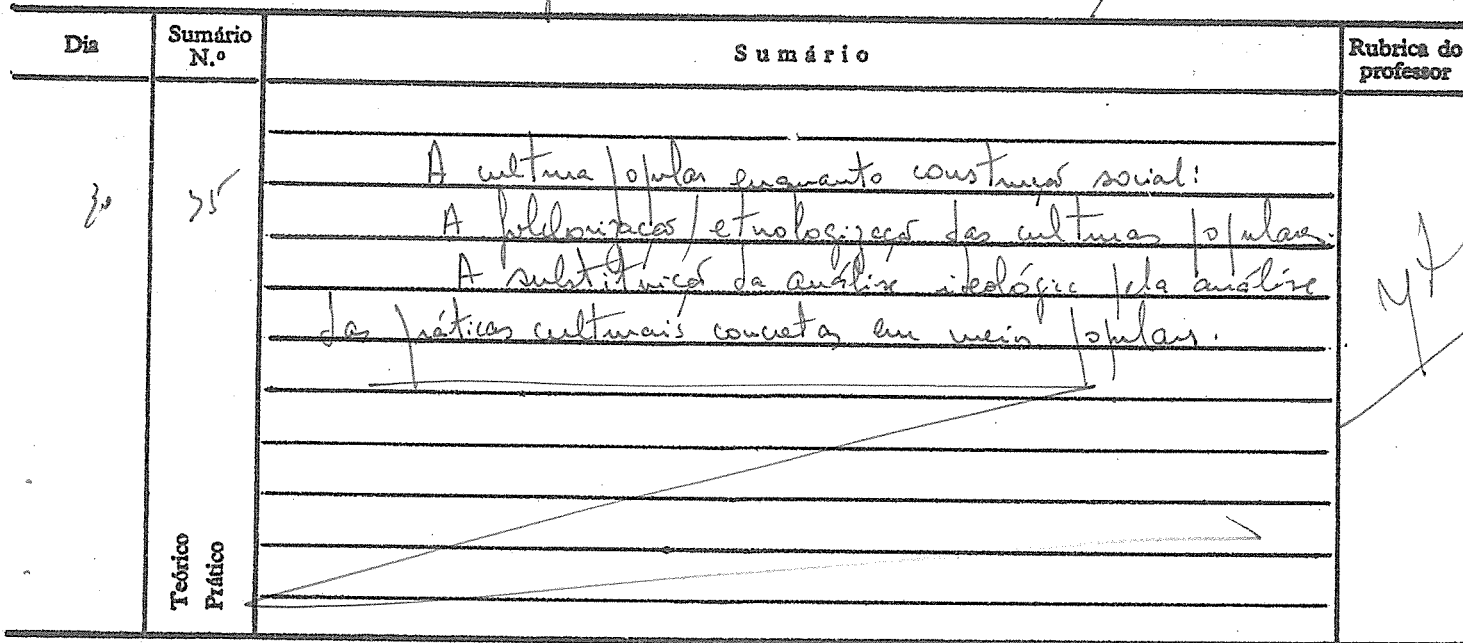 Dia Sumário N.º Sumário Rubrica do professor
A cultura popular enquanto construção social:
30 35 A folclorização/etnologização das culturas populares.
A substituição da análise ideológica pela análise
das práticas culturais concretas em meios populares.
Teórico
Prático